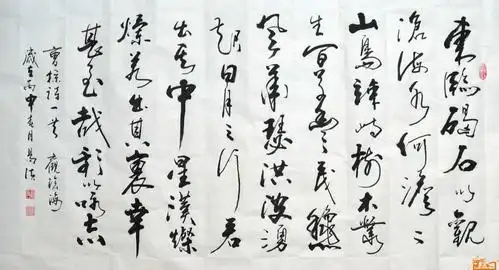 東臨碣石以觀
滄海水何澹々
山島竦峙樹木叢
生百草豐茂穐
風蕭瑟洪波湧
起日月之行若
出其中星漢燦
爛若出其裏幸
甚至哉歌以詠志
曹操詩一首 觀滄海
歲在丙申春月